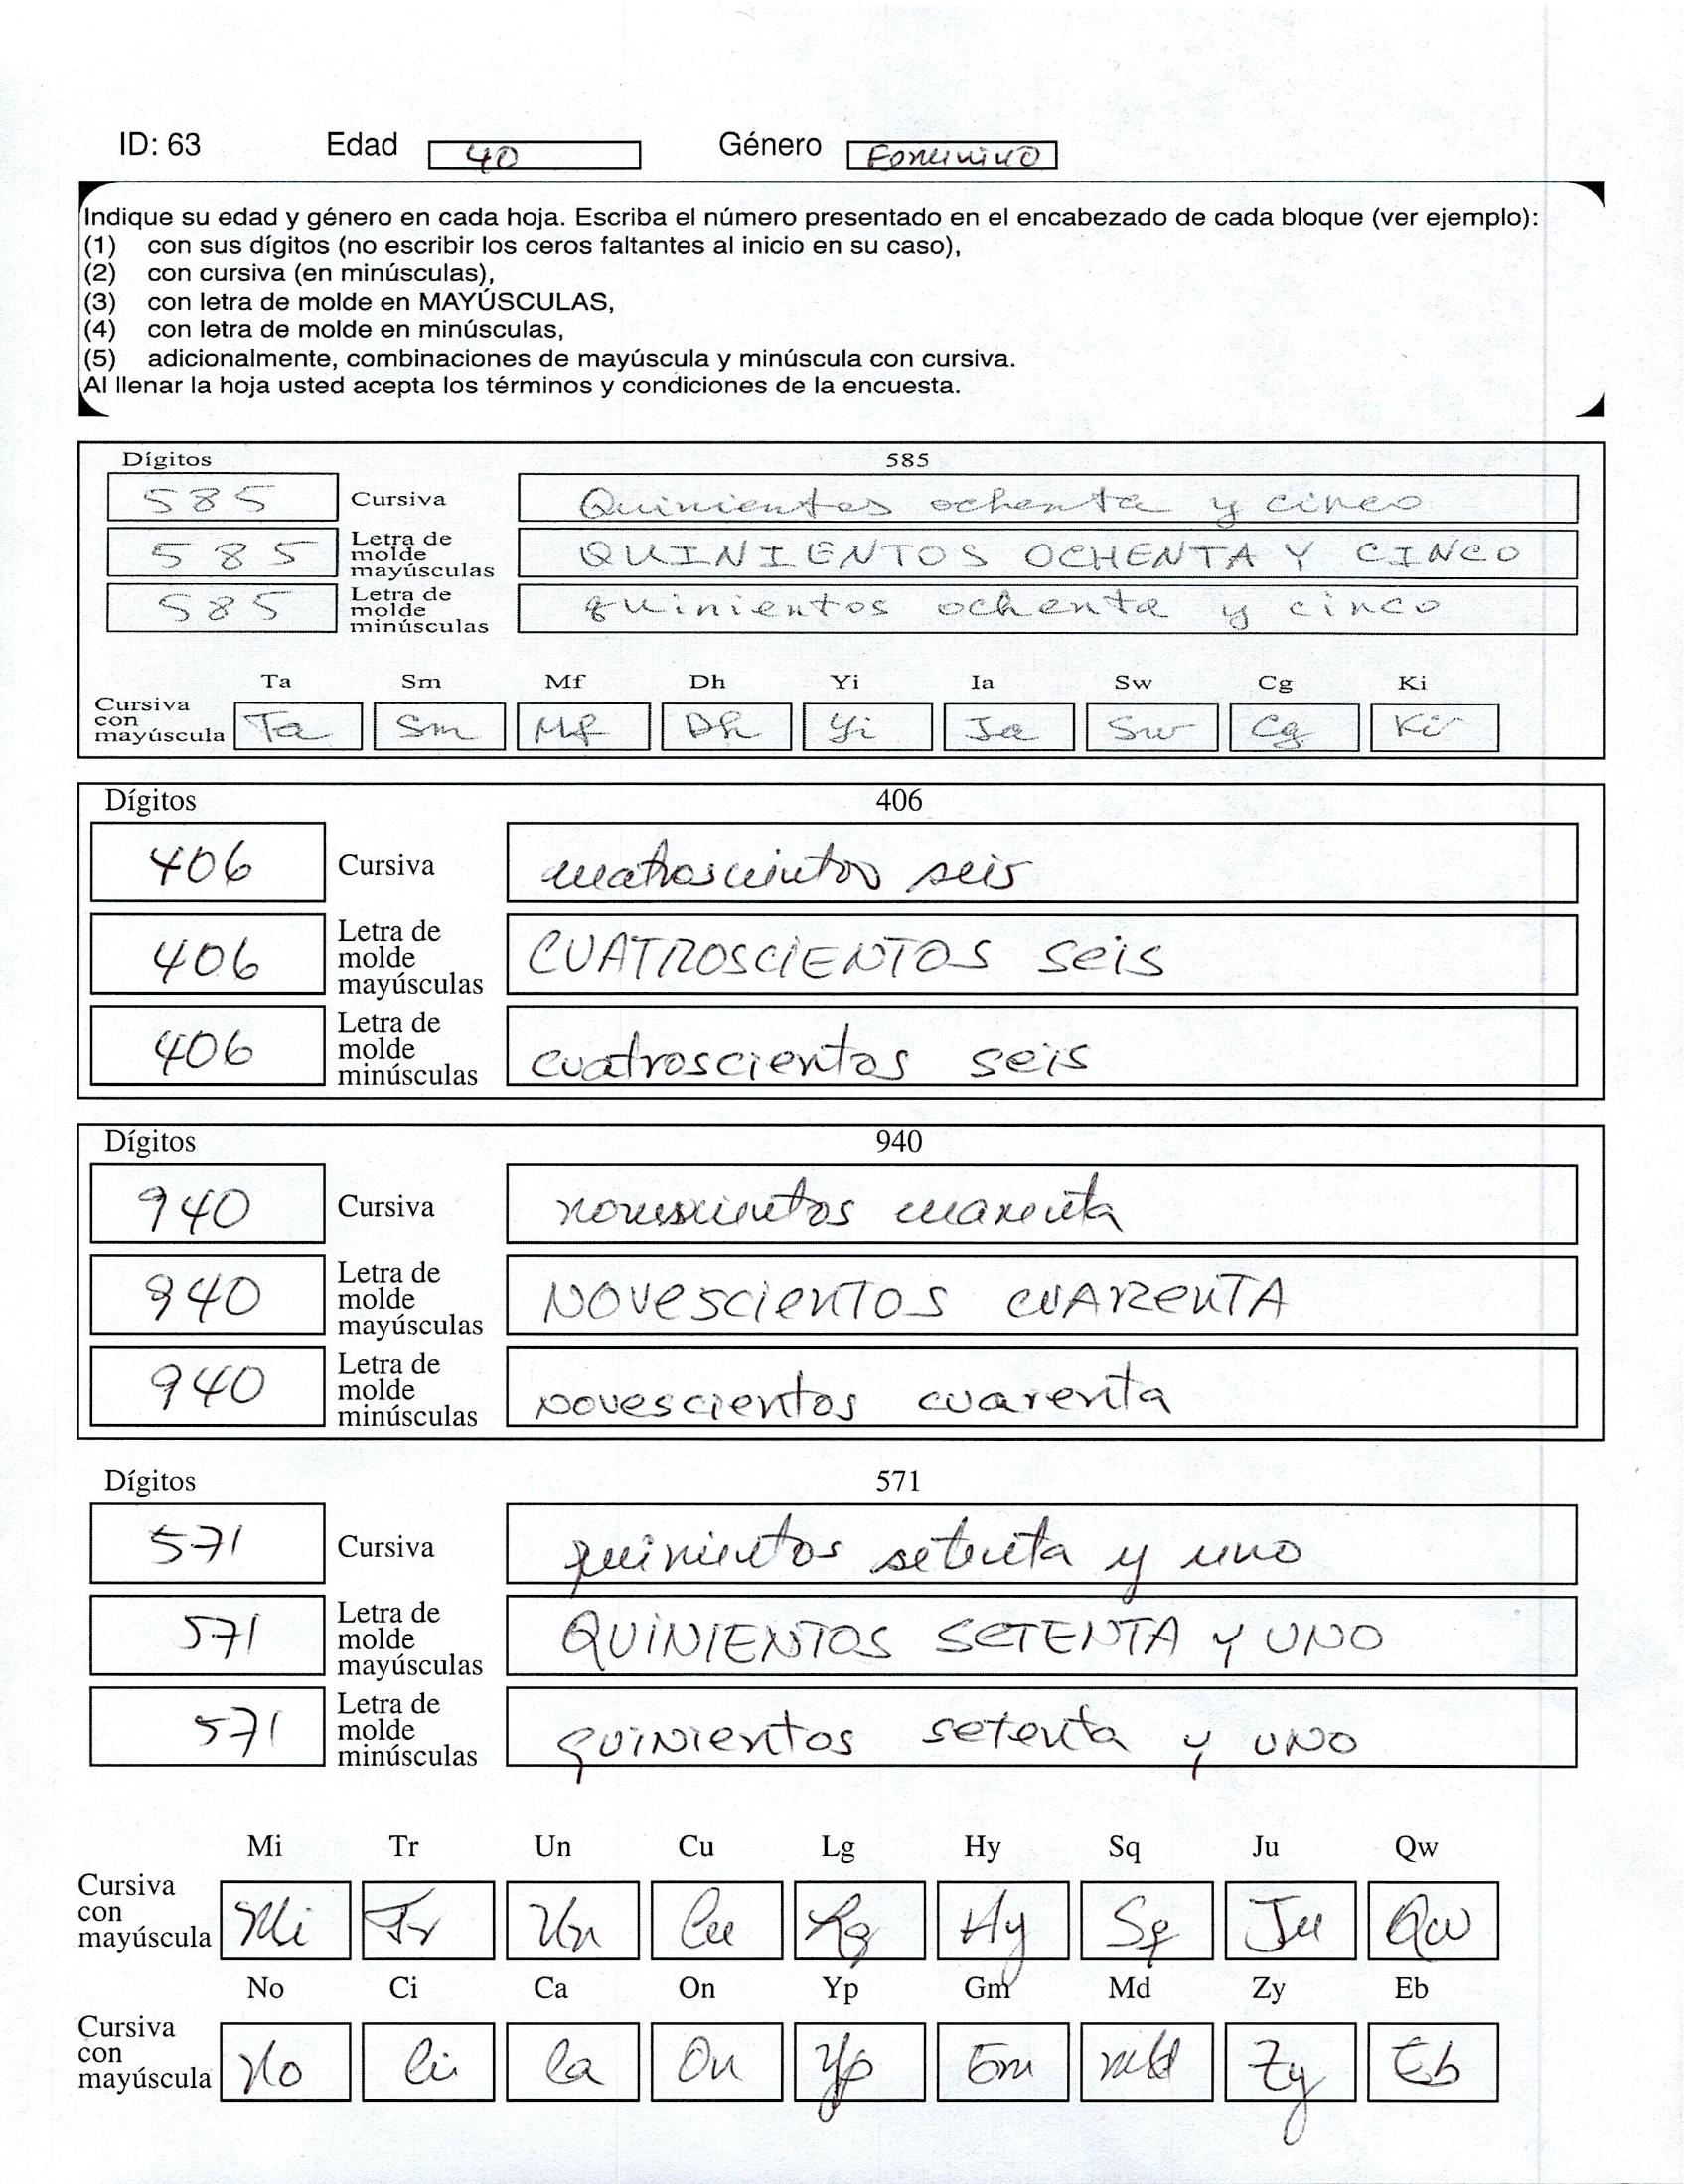 ID: 63 Edad 40 Género Femenino
Indique su edad y género en cada hoja. Escriba el número presentado en el encabezado de cada bloque (ver ejemplo):
(1) con sus dígitos (no escribir los ceros faltantes al inicio en su caso),
(2) con cursiva (en minúsculas),
(3) con letra de molde en MAYÚSCULAS,
(4) con letra de molde en minúsculas,
(5) adicionalmente, combinaciones de mayúscula y minúscula con cursiva.
Al llenar la hoja usted acepta los términos y condiciones de la encuesta.
Dígitos 585
585 Cursiva Quinientos ochenta y cinco
585 Letra de molde mayúsculas QUINIENTOS OCHENTA Y CINCO
585 Letra de molde minúsculas quinientos ochenta y cinco
Ta Sm Mf Dh Yi Ia Sw Cg Ki
Cursiva con mayúscula Ta Sm Mf Dh Yi Ia Sw Cg Ki
Dígitos 406
406 Cursiva cuatroscientos seis
406 Letra de molde mayúsculas CUATROSCiENTOS SeiS
406 Letra de molde minúsculas cuatroscientos seis
Dígitos 940
940 Cursiva novescientos cuarenta
940 Letra de molde mayúsculas NOVeScientOS cuARenTA
940 Letra de molde minúsculas novescientos cuarenta
Dígitos 571
571 Cursiva quinientos setenta y uno
571 Letra de molde mayúsculas QUiNIENTOS SETENTA Y UNO
571 Letra de molde minúsculas quinientos setenta y uno
Mi Tr Un Cu Lg Hy Sq Ju Qw
Cursiva con mayúscula Mi Tr Un Cu Lg Hy Sq Ju Qw
No Ci Ca On Yp Gm Md Zy Eb
Cursiva con mayúscula No Ci Ca On Yp Gm Md Zy Eb